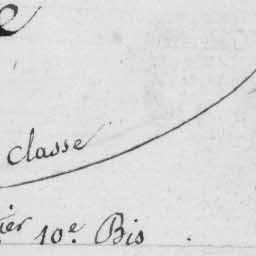 e
classe
ier 10e. Bis.